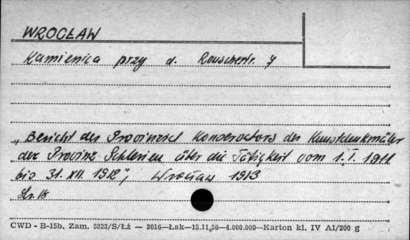 WROCŁAW
Kamienica przy d. Reuschestr. 7
„Bericht des Provinzial Konservators der Kunstdenkmäler
der Provinz Schlesien über die Tätigkeit vom 1.I.1911
bis 31.XII 1912", Wrocław 1913
CWD - B-15b, Zam. 5222/S/Łż — 3016—Łak—15.11.56—4.000.000—Karton kl. IV A1/200 g